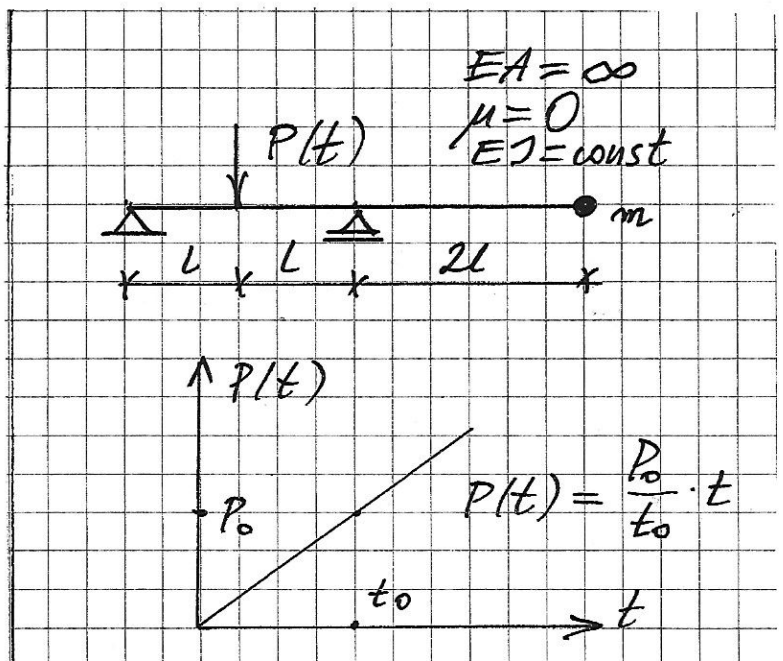 EA = ∞
μ = 0
EJ = const
P(t)
m
l l 2l
P(t)
P₀
P(t) = P₀/t₀ · t
t₀
t